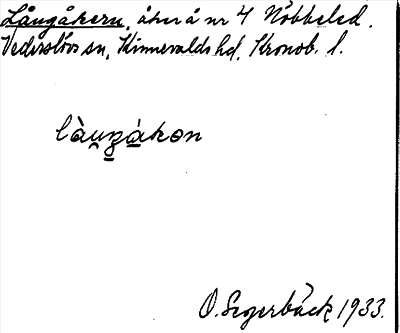 Långåkern, åker å nr 4 Nöbbeled.
Vederslövs sn, Kinnevalds hd, Kronob. l.
làu̯ngákon
O. Segerbäck 1933.